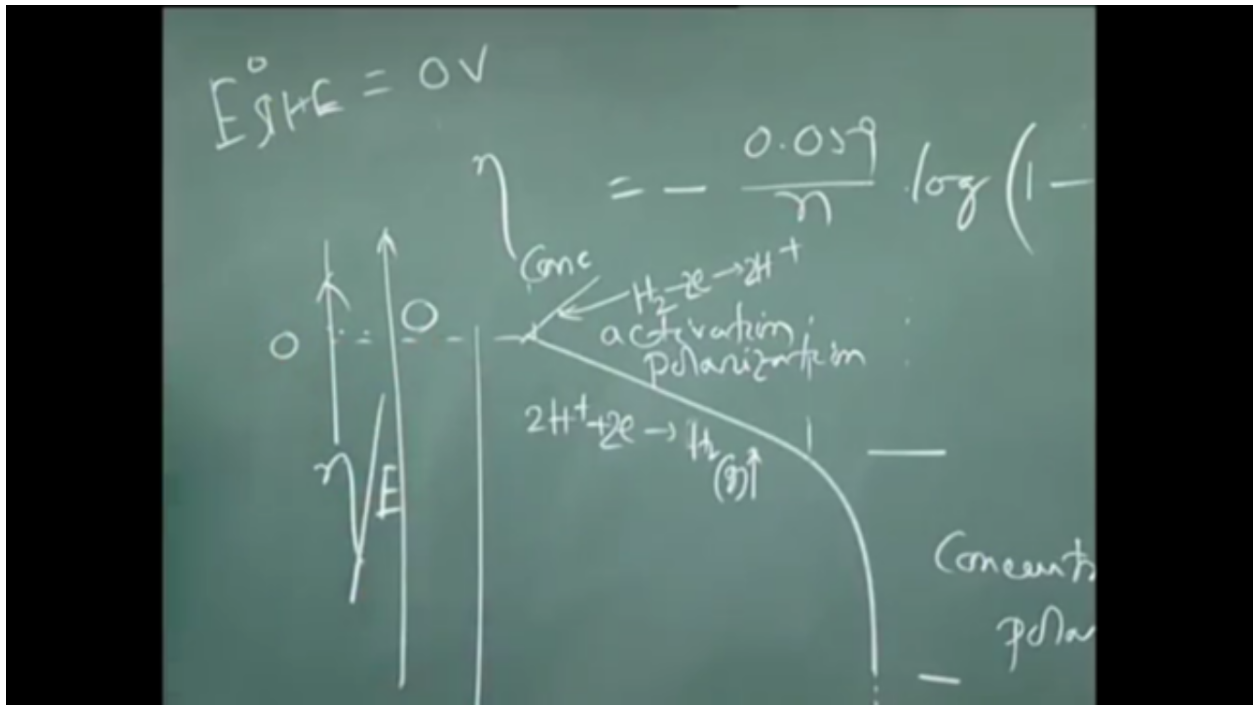 E°SHE = 0V
η conc = - 0.059/n . log (1 -
H₂-2e → 2H⁺
0
0
activation
polarization
2H⁺+2e → H₂
(g)↑
η/E
Concentr
pola